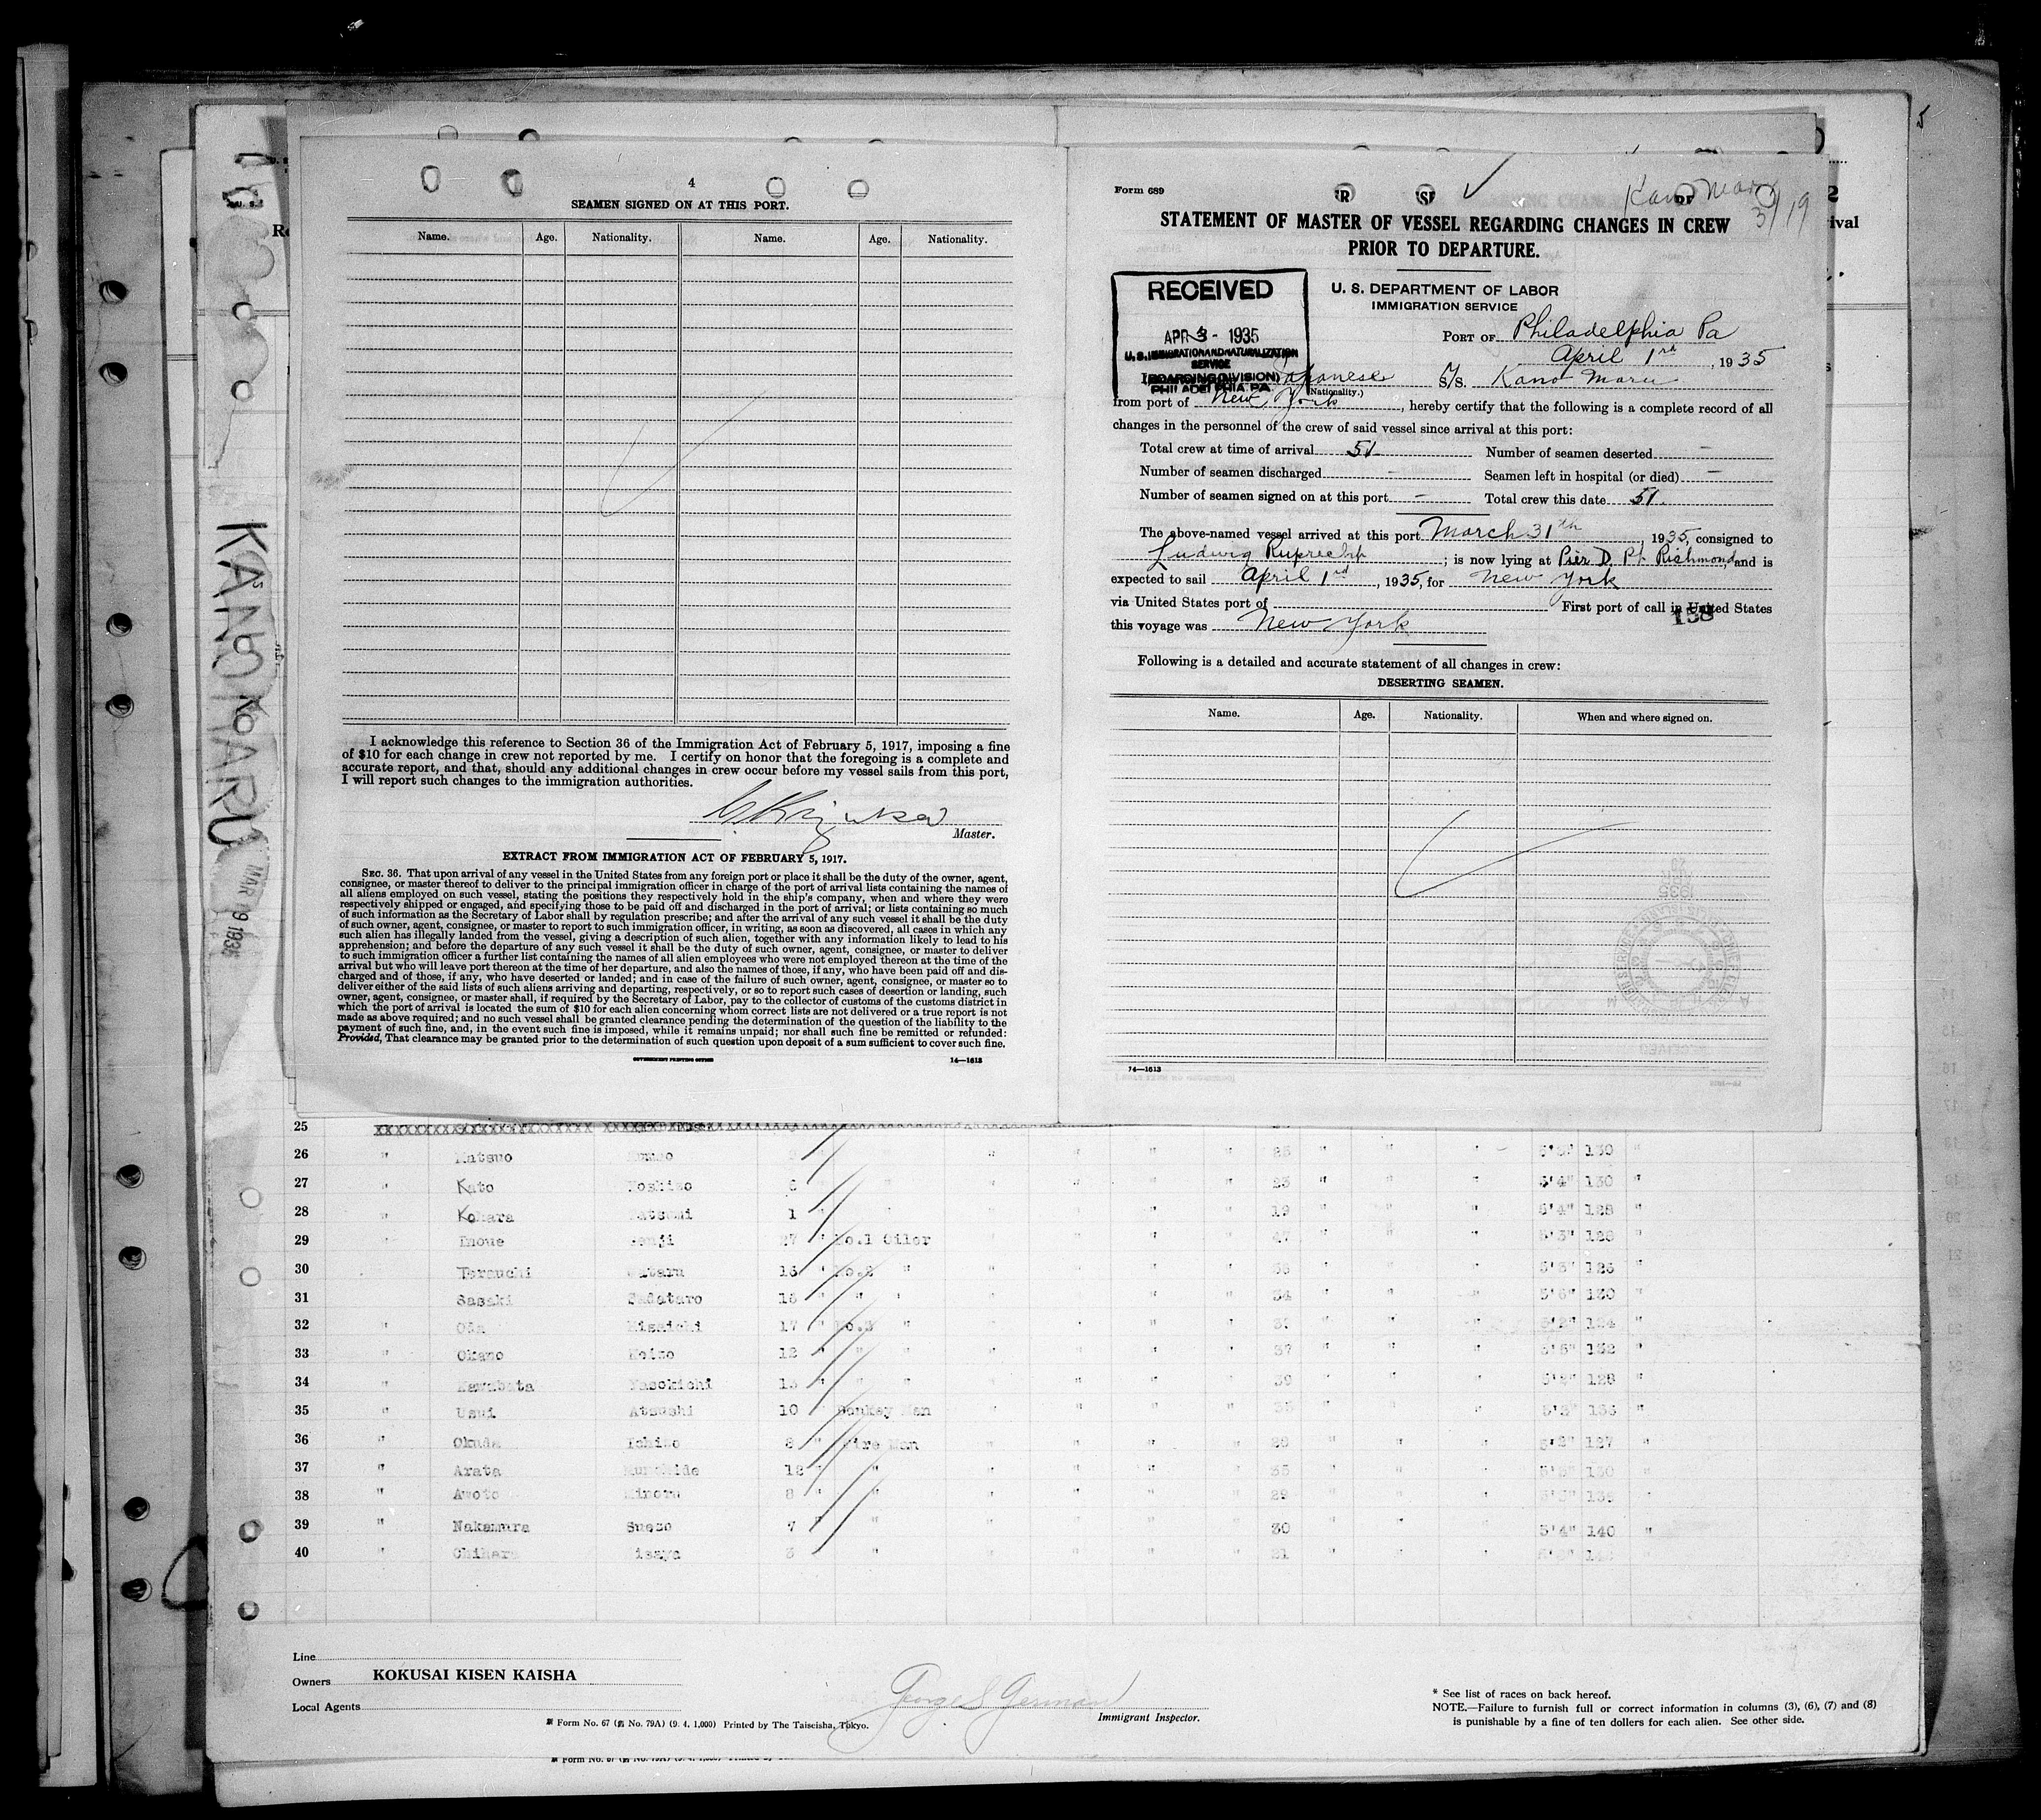 4
SEAMEN SIGNED ON AT THIS PORT.
Name. Age. Nationality. Name. Age. Nationality.
I acknowledge this reference to Section 36 of the Immigration Act of February 5, 1917, imposing a fine
of $10 for each change in crew not reported by me. I certify on honor that the foregoing is a complete and
accurate report, and that, should any additional changes in crew occur before my vessel sails from this port,
I will report such changes to the immigration authorities.
Master.
EXTRACT FROM IMMIGRATION ACT OF FEBRUARY 5, 1917.
SEC. 36. That upon arrival of any vessel in the United States from any foreign port or place it shall be the duty of the owner, agent,
consignee, or master thereof to deliver to the principal immigration officer in charge of the port of arrival lists containing the names of
all aliens employed on such vessel, stating the positions they respectively hold in the ship's company, when and where they were
respectively shipped or engaged, and specifying those to be paid off and discharged in the port of arrival; or lists containing so much
of such information as the Secretary of Labor shall by regulation prescribe; and after the arrival of any such vessel it shall be the duty
of such owner, agent, consignee, or master to report to such immigration officer, in writing, as soon as discovered, all cases in which any
such alien has illegally landed from the vessel, giving a description of such alien, together with any information likely to lead to his
apprehension; and before the departure of any such vessel it shall be the duty of such owner, agent, consignee, or master to deliver
to such immigration officer a further list containing the names of all alien employees who were not employed thereon at the time of the
arrival but who will leave port thereon at the time of her departure, and also the names of those, if any, who have been paid off and dis-
charged and of those, if any, who have deserted or landed; and in case of the failure of such owner, agent, consignee, or master so to
deliver either of the said lists of such aliens arriving and departing, respectively, or so to report such cases of desertion or landing, such
owner, agent, consignee, or master shall, if required by the Secretary of Labor, pay to the collector of customs of the customs district in
which the port of arrival is located the sum of $10 for each alien concerning whom correct lists are not delivered or a true report is not
made as above required; and no such vessel shall be granted clearance pending the determination of the question of the liability to the
payment of such fine, and, in the event such fine is imposed, while it remains unpaid; nor shall such fine be remitted or refunded:
Provided, That clearance may be granted prior to the determination of such question upon deposit of a sum sufficient to cover such fine.
GOVERNMENT PRINTING OFFICE 14—1613
Form 689
Kano Maru
3/19
STATEMENT OF MASTER OF VESSEL REGARDING CHANGES IN CREW
PRIOR TO DEPARTURE.
U. S. DEPARTMENT OF LABOR
IMMIGRATION SERVICE
RECEIVED
APR 3 - 1935
U. S. IMMIGRATION AND NATURALIZATION
SERVICE
(BOARDING DIVISION)
PHILADELPHIA PA
PORT OF Philadelphia Pa
April 1rd, 1935
Japanese S/S. Kano Maru
(Nationality.)
from port of New York, hereby certify that the following is a complete record of all
changes in the personnel of the crew of said vessel since arrival at this port:
Total crew at time of arrival 51 Number of seamen deserted —
Number of seamen discharged — Seamen left in hospital (or died) —
Number of seamen signed on at this port — Total crew this date 51.
The above-named vessel arrived at this port March 31th, 1935, consigned to
Ludwig Ruprecht; is now lying at Pier D. Pt. Richmond, and is
expected to sail April 1rd, 1935, for New York
via United States port of First port of call in United States
158
this voyage was New York
Following is a detailed and accurate statement of all changes in crew:
DESERTING SEAMEN.
Name. Age. Nationality. When and where signed on.
14—1613
KANO MARU
MAR 19 1935
25
26 " Matsuo 130 "
27 " Kato 6 23 " 5'4" 130 "
28 " Kohara 1 19 5'4" 128 "
29 " Inoue 27 " No.1 Oiler 47 5'3" 128 "
30 Terauchi Wataru 16 " No.2 " 5'3" 126 "
31 Sasaki Sadataro 34 5'6" 130 "
32 " Oda 17 " No.3 " 5'2" 124 "
33 " Okano 12 " 37 132 "
34 " Kawabata Yasokichi 13 " 39 128 "
35 " Usui Atsushi 10 Donkey Man "
36 " Okuda 8 " Fire Man 5'2" 127 "
37 " Arata 12 " 35 130
38 " Minoru 8 " 29
39 " Nakamura Suezo 7 " 30 5'4" 140 "
40 " 3 21
Line
Owners KOKUSAI KISEN KAISHA
Local Agents
George S German
Immigrant Inspector.
Form No. 67 ( No. 79A) (9. 4. 1,000) Printed by The Taiseisha, Tokyo.
* See list of races on back hereof.
NOTE.—Failure to furnish full or correct information in columns (3), (6), (7) and (8)
is punishable by a fine of ten dollars for each alien. See other side.